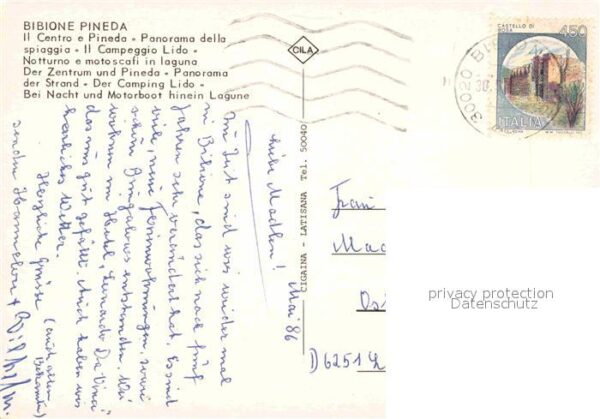 BIBIONE PINEDA
Il Centro e Pineda - Panorama della
spiaggia - Il Campeggio Lido -
Notturno e motoscafi in laguna
Der Zentrum und Pineda - Panorama
der Strand - Der Camping Lido -
Bei Nacht und Motorboot hinein Lagune
CILA
CASTELLO DI
BOSA
450
ITALIA
30020 BI
CIGAINA - LATISANA Tel. 50040
Mai 86
Liebe Madlen!
Zur Zeit sind wir wieder mal
in Bibione, das sich nach fünf
Jahren sehr verändert hat. Es sind
viele neue Ferienwohnungen, sowie
schöne Bungalows entstanden. Wir
wohnen im Hotel "Leonardo Da Vinci"
das uns gut gefällt. Auch haben wir
herrliches Wetter.
Herzliche Grüsse (auch allen
Bekannten)
senden Hannelore + Wilhelm
Frau
Mad
Os
D 6251
privacy protection
Datenschutz